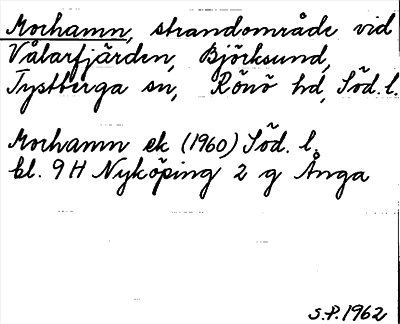 Morhamn, strandområde vid
Vålarfjärden, Björksund,
Tystberga sn, Rönö hd, Söd. l.
Morhamn ek (1960) Söd. l.
bl. 9 H Nyköping 2 g Ånga
S.P. 1962